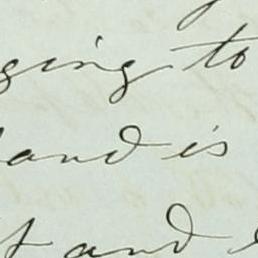 ging to
and is
and